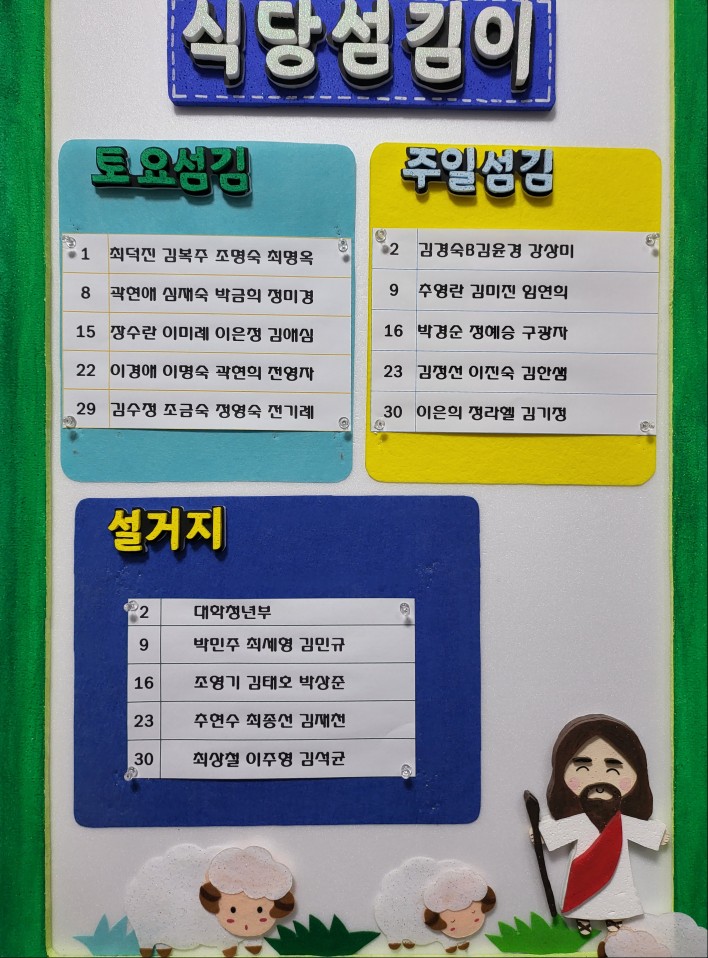 식당섬김이
토요섬김
1 최덕진 김복주 조명숙 최명옥
8 곽현애 심재숙 박금희 정미경
15 장수란 이미례 이은정 김애심
22 이경애 이명숙 곽현희 전영자
29 김수정 조금숙 정영숙 전기례
주일섬김
2 김경숙B김윤경 강상미
9 추영란 김미진 임연희
16 박경순 정혜승 구광자
23 김정선 이진숙 김한샘
30 이은희 정라헬 김기정
설거지
2 대학청년부
9 박민주 최세영 김민규
16 조영기 김태호 박상준
23 추현수 최종선 김재천
30 최상철 이주영 김석균